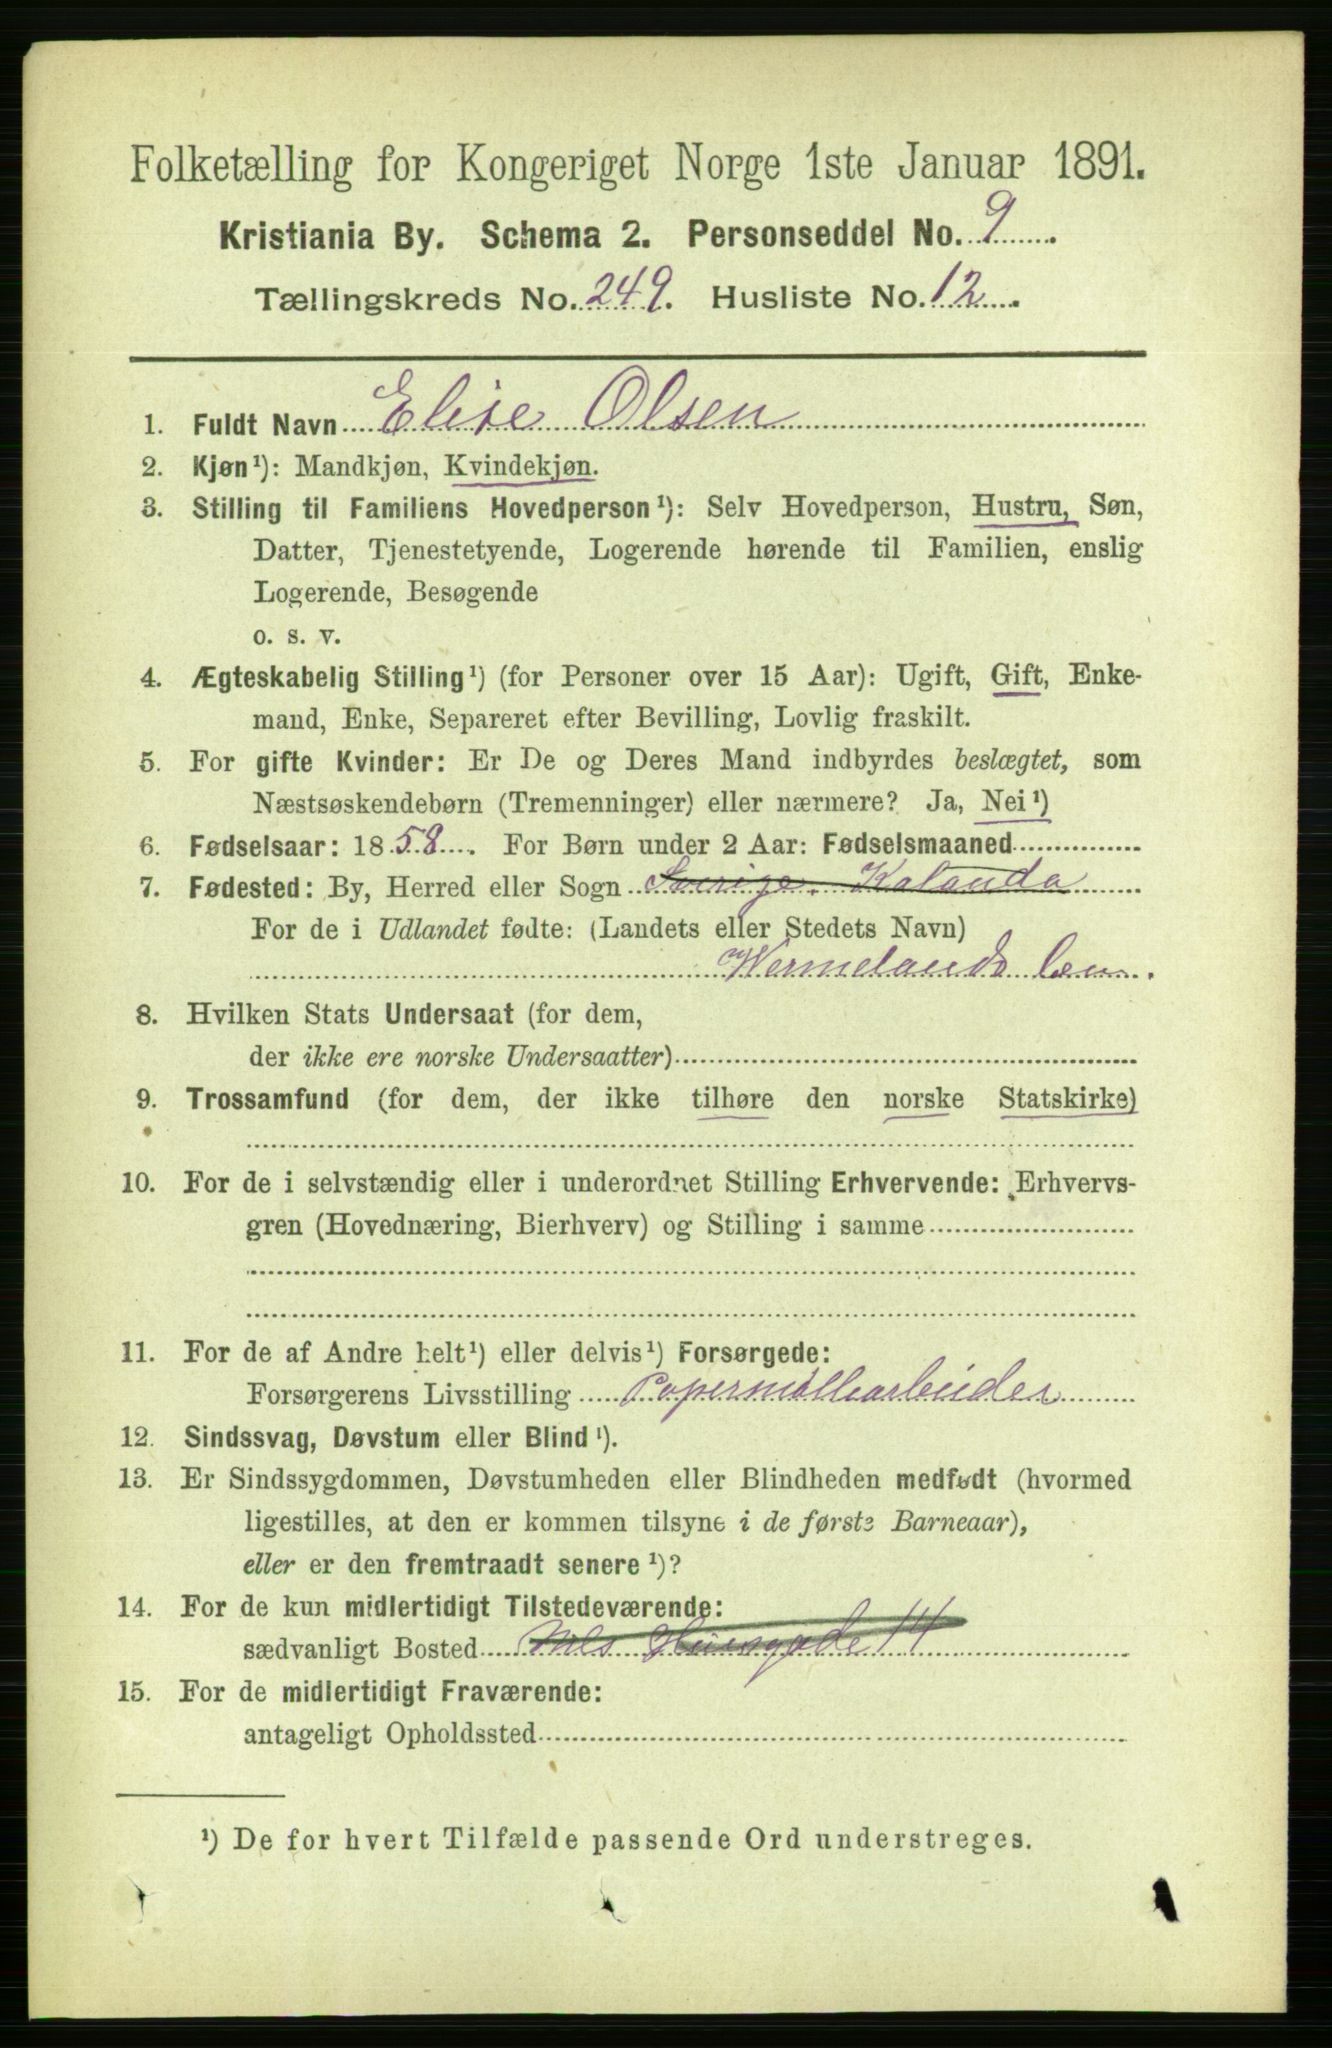 Folketælling for Kongeriget Norge 1ste Januar 1891.
Kristiania By. Schema 2. Personseddel No. 9
Tællingskreds No. 249. Husliste No. 12
1. Fuldt Navn Elise Olsen
2. Kjøn¹): Mandkjøn, Kvindekjøn.
3. Stilling til Familiens Hovedperson¹): Selv Hovedperson, Hustru, Søn,
Datter, Tjenestetyende, Logerende hørende til Familien, enslig
Logerende, Besøgende
o. s. v.
4. Ægteskabelig Stilling¹) (for Personer over 15 Aar): Ugift, Gift, Enke-
mand, Enke, Separeret efter Bevilling, Lovlig fraskilt.
5. For gifte Kvinder: Er De og Deres Mand indbyrdes beslægtet, som
Næstsøskendebørn (Tremenninger) eller nærmere? Ja, Nei¹)
6. Fødselsaar: 1858. For Børn under 2 Aar: Fødselsmaaned
7. Fødested: By, Herred eller Sogn Sverige. Kalanda
For de i Udlandet fødte: (Landets eller Stedets Navn)
Wermelands Len.
8. Hvilken Stats Undersaat (for dem,
der ikke ere norske Undersaatter)
9. Trossamfund (for dem, der ikke tilhøre den norske Statskirke)
10. For de i selvstændig eller i underordnet Stilling Erhvervende: Erhvervs-
gren (Hovednæring, Bierhverv) og Stilling i samme
11. For de af Andre helt¹) eller delvis¹) Forsørgede:
Forsørgerens Livsstilling Papermøllearbeider
12. Sindssvag, Døvstum eller Blind¹).
13. Er Sindssygdommen, Døvstumheden eller Blindheden medfødt (hvormed
ligestilles, at den er kommen tilsyne i de første Barneaar),
eller er den fremtraadt senere¹)?
14. For de kun midlertidigt Tilstedeværende:
sædvanligt Bosted Nils Huusgade 14
15. For de midlertidigt Fraværende:
antageligt Opholdssted
¹) De for hvert Tilfælde passende Ord understreges.